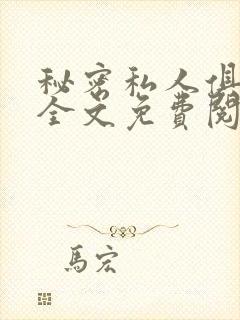 秘密私人俱
全文免費閱
馬宏